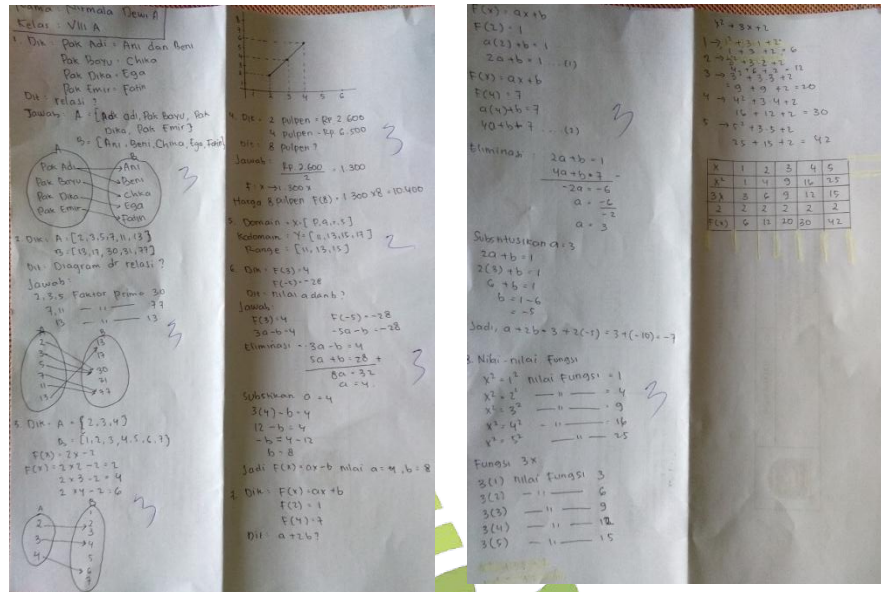 Nama : Nirmala Dewi A
Kelas : VIII A
1. Dik : Pak Adi = Ani dan Beni
Pak Bayu = Chika
Pak Dika = Ega
Pak Emir = Fatin
Dit : relasi ?
Jawab : A = {Pak adi, Pak Bayu, Pak
Dika, Pak Emir}
B = {Ani, Beni, Chika, Ega, Fatin}
A B
Pak Adi Ani
Pak Bayu Beni
Pak Dika Chika
Pak Emir Ega
Fatin
3
2. Dik : A = [2,3,5,7,11,13]
B = [13,17,30,31,77]
Dit : Diagram dr relasi ?
Jawab :
2,3,5 Faktor Prima 30
7,11 — " — 77
13 — " — 13
3
A B
2 13
3 17
5 30
7 31
11 77
13
3. Dik = A = {2,3,4}
B = {1,2,3,4,5,6,7}
F(x) = 2x-2
F(x) = 2x2-2=2
2x3-2=4
2x4-2=6
3
A B
2 1
3 2
4 3
4
5
6
7
1 2 3 4 5 6
4. Dit = 2 pulpen = Rp 2.600
4 pulpen = Rp 6.500
Dit = 8 pulpen ?
Jawab :
Rp 2.600 / 2 = 1.300
F : x → 1.300 x
Harga 8 pulpen F(8) = 1.300 x8 = 10.400
3
5. Domain = x = [P,q,r,s]
Kodomain = Y = [11,13,15,17]
Range = [11,13,15]
2
6. Dik = F(3) = 4
F(-5) = -28
Dit = nilai a dan b ?
Jawab :
F(3)=4 F(-5) = -28
3a-b=4 -5a-b=-28
Eliminasi = 3a-b=4
5a+b=28 +
8a = 32
a = 4
3
Subsikan a = 4
3(4)-b=4
12-b=4
-b=4-12
b=8
Jadi F(x)=ax-b nilai a=4, b=8
7. Dik = F(x)=ax+b
F(2) = 1
F(4) = 7
Dit : a+2b ?
F(x) = ax+b
F(2) = 1
a(2)+b=1
2a+b=1 ...(1)
F(x) = ax+b
F(4)=7
a(4)+b=7
4a+b=7 ...(2)
3
Eliminasi : 2a+b=1
4a+b=7 -
-2a=-6
a = -6 / -2
a = 3
Substitusikan a=3
2a+b=1
2(3)+b=1
6+b=1
b=1-6
= -5
Jadi, a+2b=3+2(-5)=3+(-10)=-7
8. Nilai-nilai Fungsi
x² = 1² nilai Fungsi = 1
x² = 2² — " — = 4
x² = 3² — " — = 9
x² = 4² — " — = 16
x² = 5² — " — 25
3
Fungsi 3x
3(1) nilai Fungsi 3
3(2) — " — 6
3(3) — " — 9
3(4) — " — 12
3(5) — " — 15
x²+3x+2
1 → 1²+3.1+2
1+3+2=6
2 → 2²+3.2+2
4+6+2=12
3 → 3²+3.3+2
9+9+2=20
4 → 4²+3.4+2
16+12+2=30
5 → 5²+3.5+2
25+15+2=42
x 1 2 3 4 5
x² 1 4 9 16 25
3x 3 6 9 12 15
2 2 2 2 2 2
F(x) 6 12 20 30 42